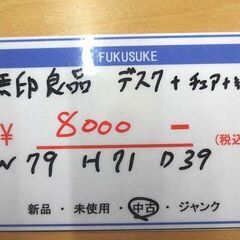 FUKUSUKE
無印良品 デスク+チェア+
¥ 8000 -
(税込
W 79 H71 D39
新品・未使用・中古・ジャンク